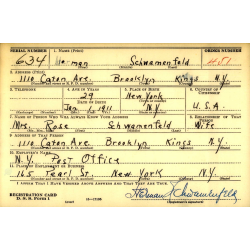 SERIAL NUMBER 1. NAME (Print) ORDER NUMBER
634 Herman Schwamenfeld 451
2. ADDRESS (Print)
1110 Caton Ave. Brooklyn Kings N.Y.
3. TELEPHONE 4. AGE IN YEARS 5. PLACE OF BIRTH 6. COUNTRY OF CITIZENSHIP
29 New York
DATE OF BIRTH
Jan. 1, 1911 N.Y. U.S.A.
7. NAME OF PERSON WHO WILL ALWAYS KNOW YOUR ADDRESS 8. RELATIONSHIP OF THAT PERSON
Mrs. Rose Schwamenfeld Wife
9. ADDRESS OF THAT PERSON
1110 Caton Ave. Brooklyn Kings N.Y.
10. EMPLOYER'S NAME
N.Y. Post Office
11. PLACE OF EMPLOYMENT OR BUSINESS
165 Pearl St. New York N.Y.
I AFFIRM THAT I HAVE VERIFIED ABOVE ANSWERS AND THAT THEY ARE TRUE.
REGISTRATION CARD
D. S. S. Form 1 Herman Schwamenfeld